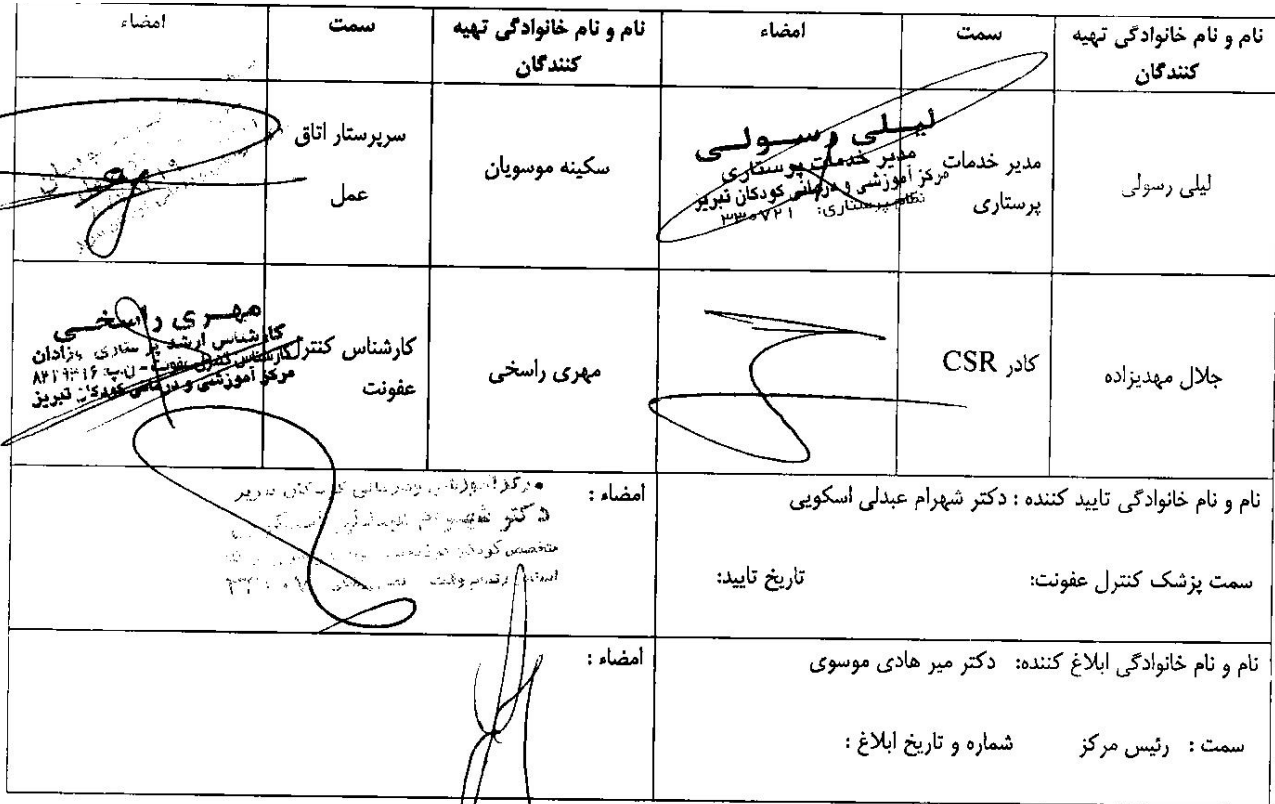 نام و نام خانوادگی تهیه کنندگان
سمت
امضاء
نام و نام خانوادگی تهیه کنندگان
سمت
امضاء
لیلی رسولی
مدیر خدمات پرستاری
لیلی رسولی
مدیر خدمات پرستاری
مرکز آموزشی و درمانی کودکان تبریز
نظام پرستاری: ۳۳۰۷۲۱
سکینه موسویان
سرپرستار اتاق عمل
جلال مهدیزاده
کادر CSR
مهری راسخی
کارشناس کنترل عفونت
مهری راسخی
کارشناس ارشد پرستاری
کارشناس کنترل عفونت
مرکز آموزشی و درمانی کودکان تبریز
نام و نام خانوادگی تایید کننده : دکتر شهرام عبدلی اسکویی
سمت پزشک کنترل عفونت:
تاریخ تایید:
امضاء :
مرکز آموزشی ودرمانی کودکان تبریز
دکتر شهرام
متخصص کودکان
نام و نام خانوادگی ابلاغ کننده: دکتر میر هادی موسوی
سمت : رئیس مرکز
شماره و تاریخ ابلاغ :
امضاء :